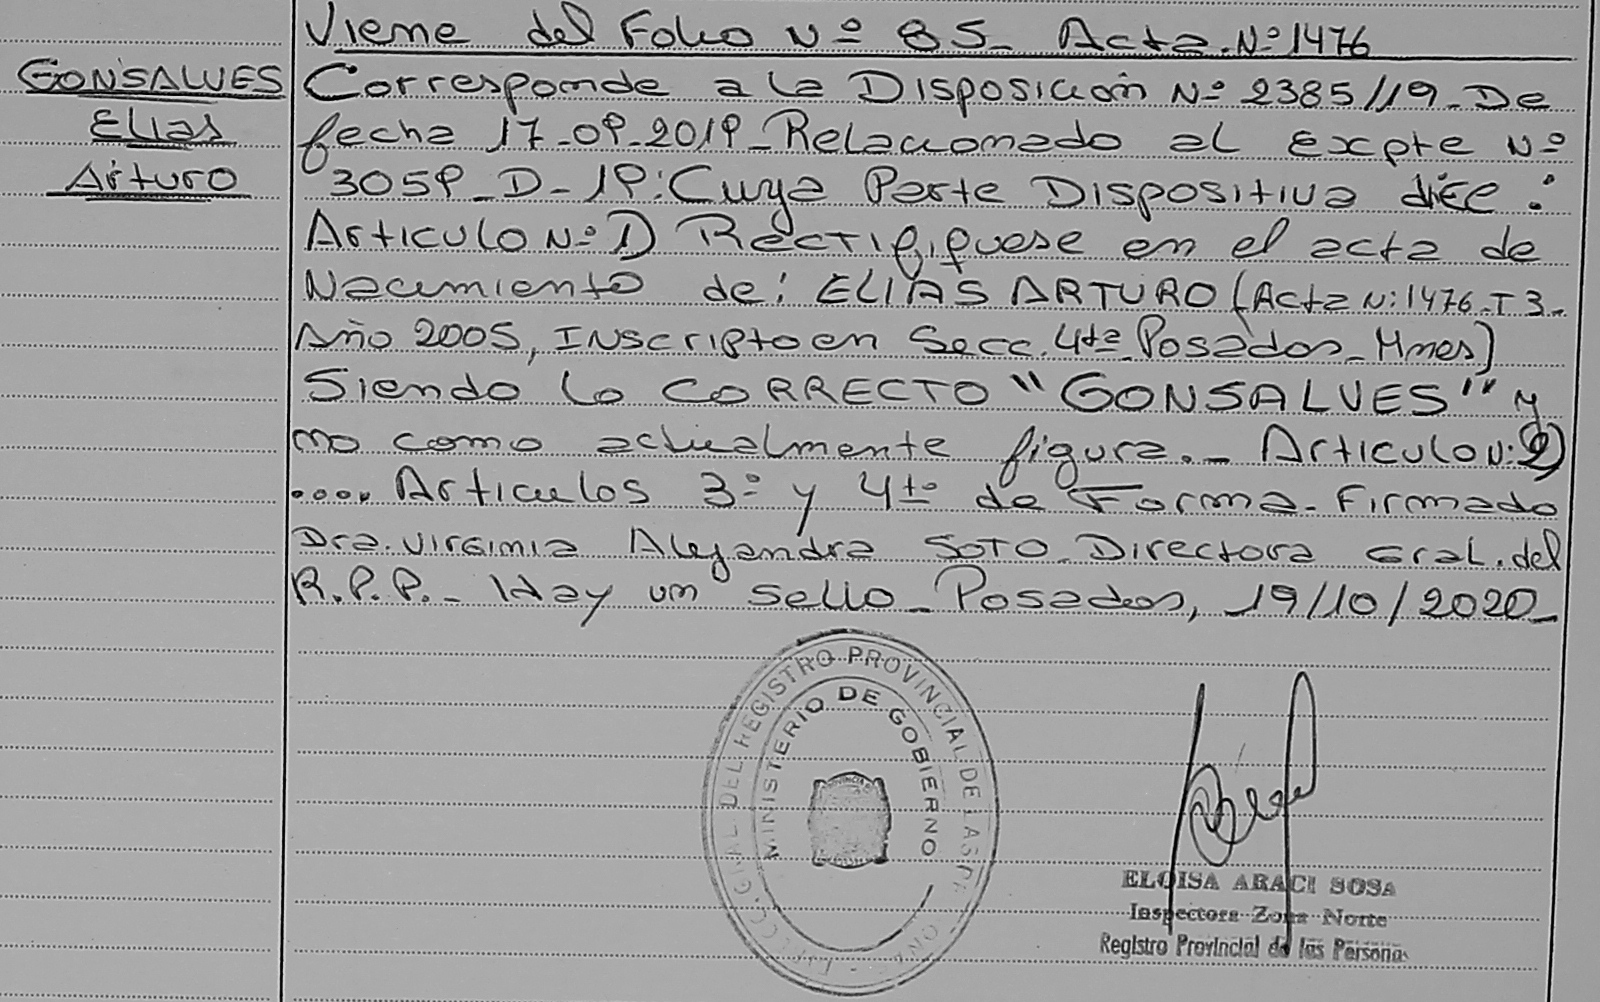 Viene del Folio Nº 85_ Acta. Nº 1476
GONSALVES
Elias
Arturo
Corresponde a la Disposición Nº 2385/19_De
fecha 17_09_2019_Relacionado al Expte Nº
3059_D_19: Cuya Parte Dispositiva dice:
Articulo Nº 1) Rectifiquese en el acta de
Nacimiento de: ELIAS ARTURO (Acta N: 1476_T 3_
Año 2005, INscripto en Secc. 4ta_Posadas_Mnes)
Siendo lo CORRECTO "GONSALVES" y
no como actualmente figura._ Articulo N: 2)
.... Articulos 3º y 4to de Forma_Firmado
Dra. Virginia Alejandra SOTO_Directora Gral. del
R.P.P._ Hay un sello_Posadas, 19/10/2020_
GRAL. DEL REGISTRO PROVINCIAL DE LAS
MINISTERIO DE GOBIERNO
ELOISA ARACI SOSA
Inspectora Zona Norte
Registro Provincial de las Personas